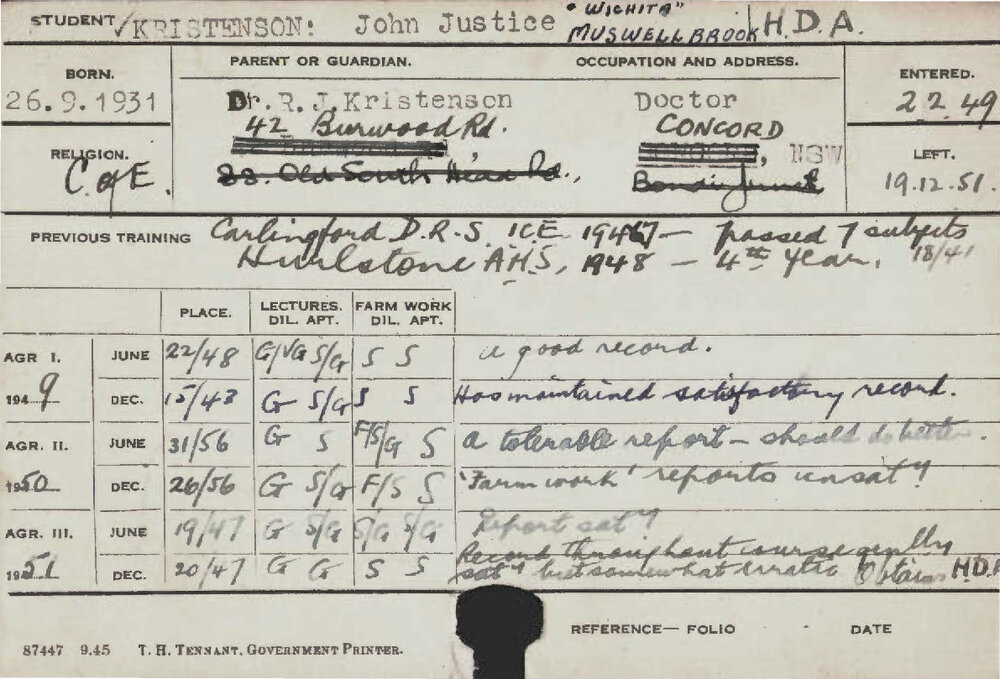 STUDENT ✓KRISTENSON: John Justice "WICHITA" MUSWELLBROOK H.D.A.
BORN. PARENT OR GUARDIAN. OCCUPATION AND ADDRESS. ENTERED.
26.9.1931 Dr. R. J. Kristenson Doctor 2 2 49
42 Burwood Rd. CONCORD
RELIGION. , NSW LEFT.
C of E. 33. Old South Head Rd., Bondi Junct 19.12.51.
PREVIOUS TRAINING Carlingford D.R.S. ICE 1947 — passed 7 subjects
Hurlstone A.H.S, 1948 — 4th Year, 18/41
PLACE. LECTURES. FARM WORK
DIL. APT. DIL. APT.
AGR I. JUNE 22/48 G/VG S/G S S a good record.
1949 DEC. 15/43 G S/G S S Has maintained satisfactory record.
AGR. II. JUNE 31/56 G S F/S/G S a tolerable report — should do better.
1950 DEC. 26/56 G S/G F/S S 'Farm work' reports unsaty
AGR. III. JUNE 19/47 G S/G S/G S/G Report saty
1951 DEC. 20/47 G G S S Record throughout course genlly
saty but somewhat erratic Obtains H.D.A
REFERENCE— FOLIO DATE
87447 9.45 T. H. TENNANT, GOVERNMENT PRINTER.